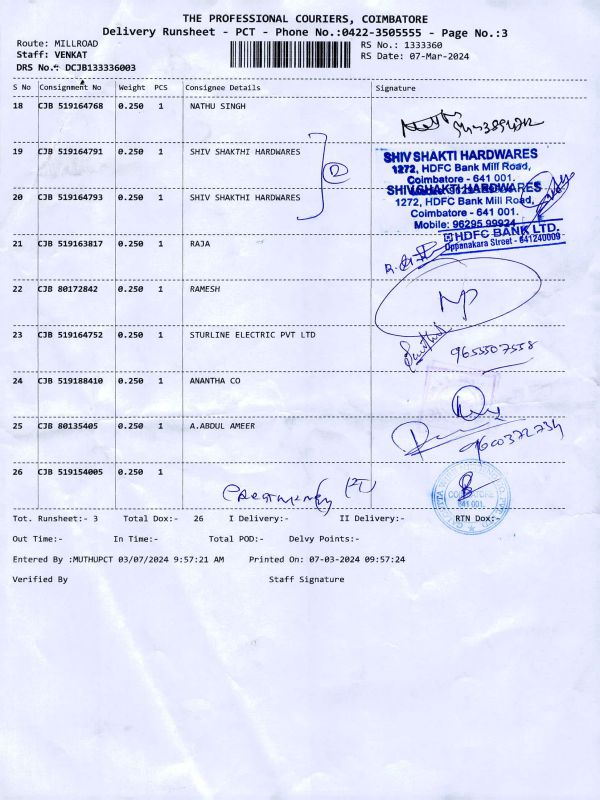 THE PROFESSIONAL COURIERS, COIMBATORE
Delivery Runsheet - PCT - Phone No.:0422-3505555 - Page No.:3
Route: MILLROAD
RS No.: 1333360
Staff: VENKAT
RS Date: 07-Mar-2024
DRS No.: DCJB133336003
S No Consignment No Weight PCS Consignee Details Signature
18 CJB 519164768 0.250 1 NATHU SINGH
19 CJB 519164791 0.250 1 SHIV SHAKTHI HARDWARES
SHIV SHAKTI HARDWARES
1272, HDFC Bank Mill Road,
Coimbatore - 641 001.
20 CJB 519164793 0.250 1 SHIV SHAKTHI HARDWARES
SHIV SHAKTI HARDWARES
1272, HDFC Bank Mill Road,
Coimbatore - 641 001.
Mobile: 96295 99924
HDFC BANK LTD.
Oppanakara Street - 641240009
21 CJB 519163817 0.250 1 RAJA
22 CJB 80172842 0.250 1 RAMESH
23 CJB 519164752 0.250 1 STURLINE ELECTRIC PVT LTD
9655507558
24 CJB 519188410 0.250 1 ANANTHA CO
25 CJB 80135405 0.250 1 A.ABDUL AMEER
9600372734
26 CJB 519154005 0.250 1
Tot. Runsheet:- 3 Total Dox:- 26 I Delivery:- II Delivery:- RTN Dox:-
Out Time:- In Time:- Total POD:- Delvy Points:-
Entered By :MUTHUPCT 03/07/2024 9:57:21 AM Printed On: 07-03-2024 09:57:24
Verified By Staff Signature